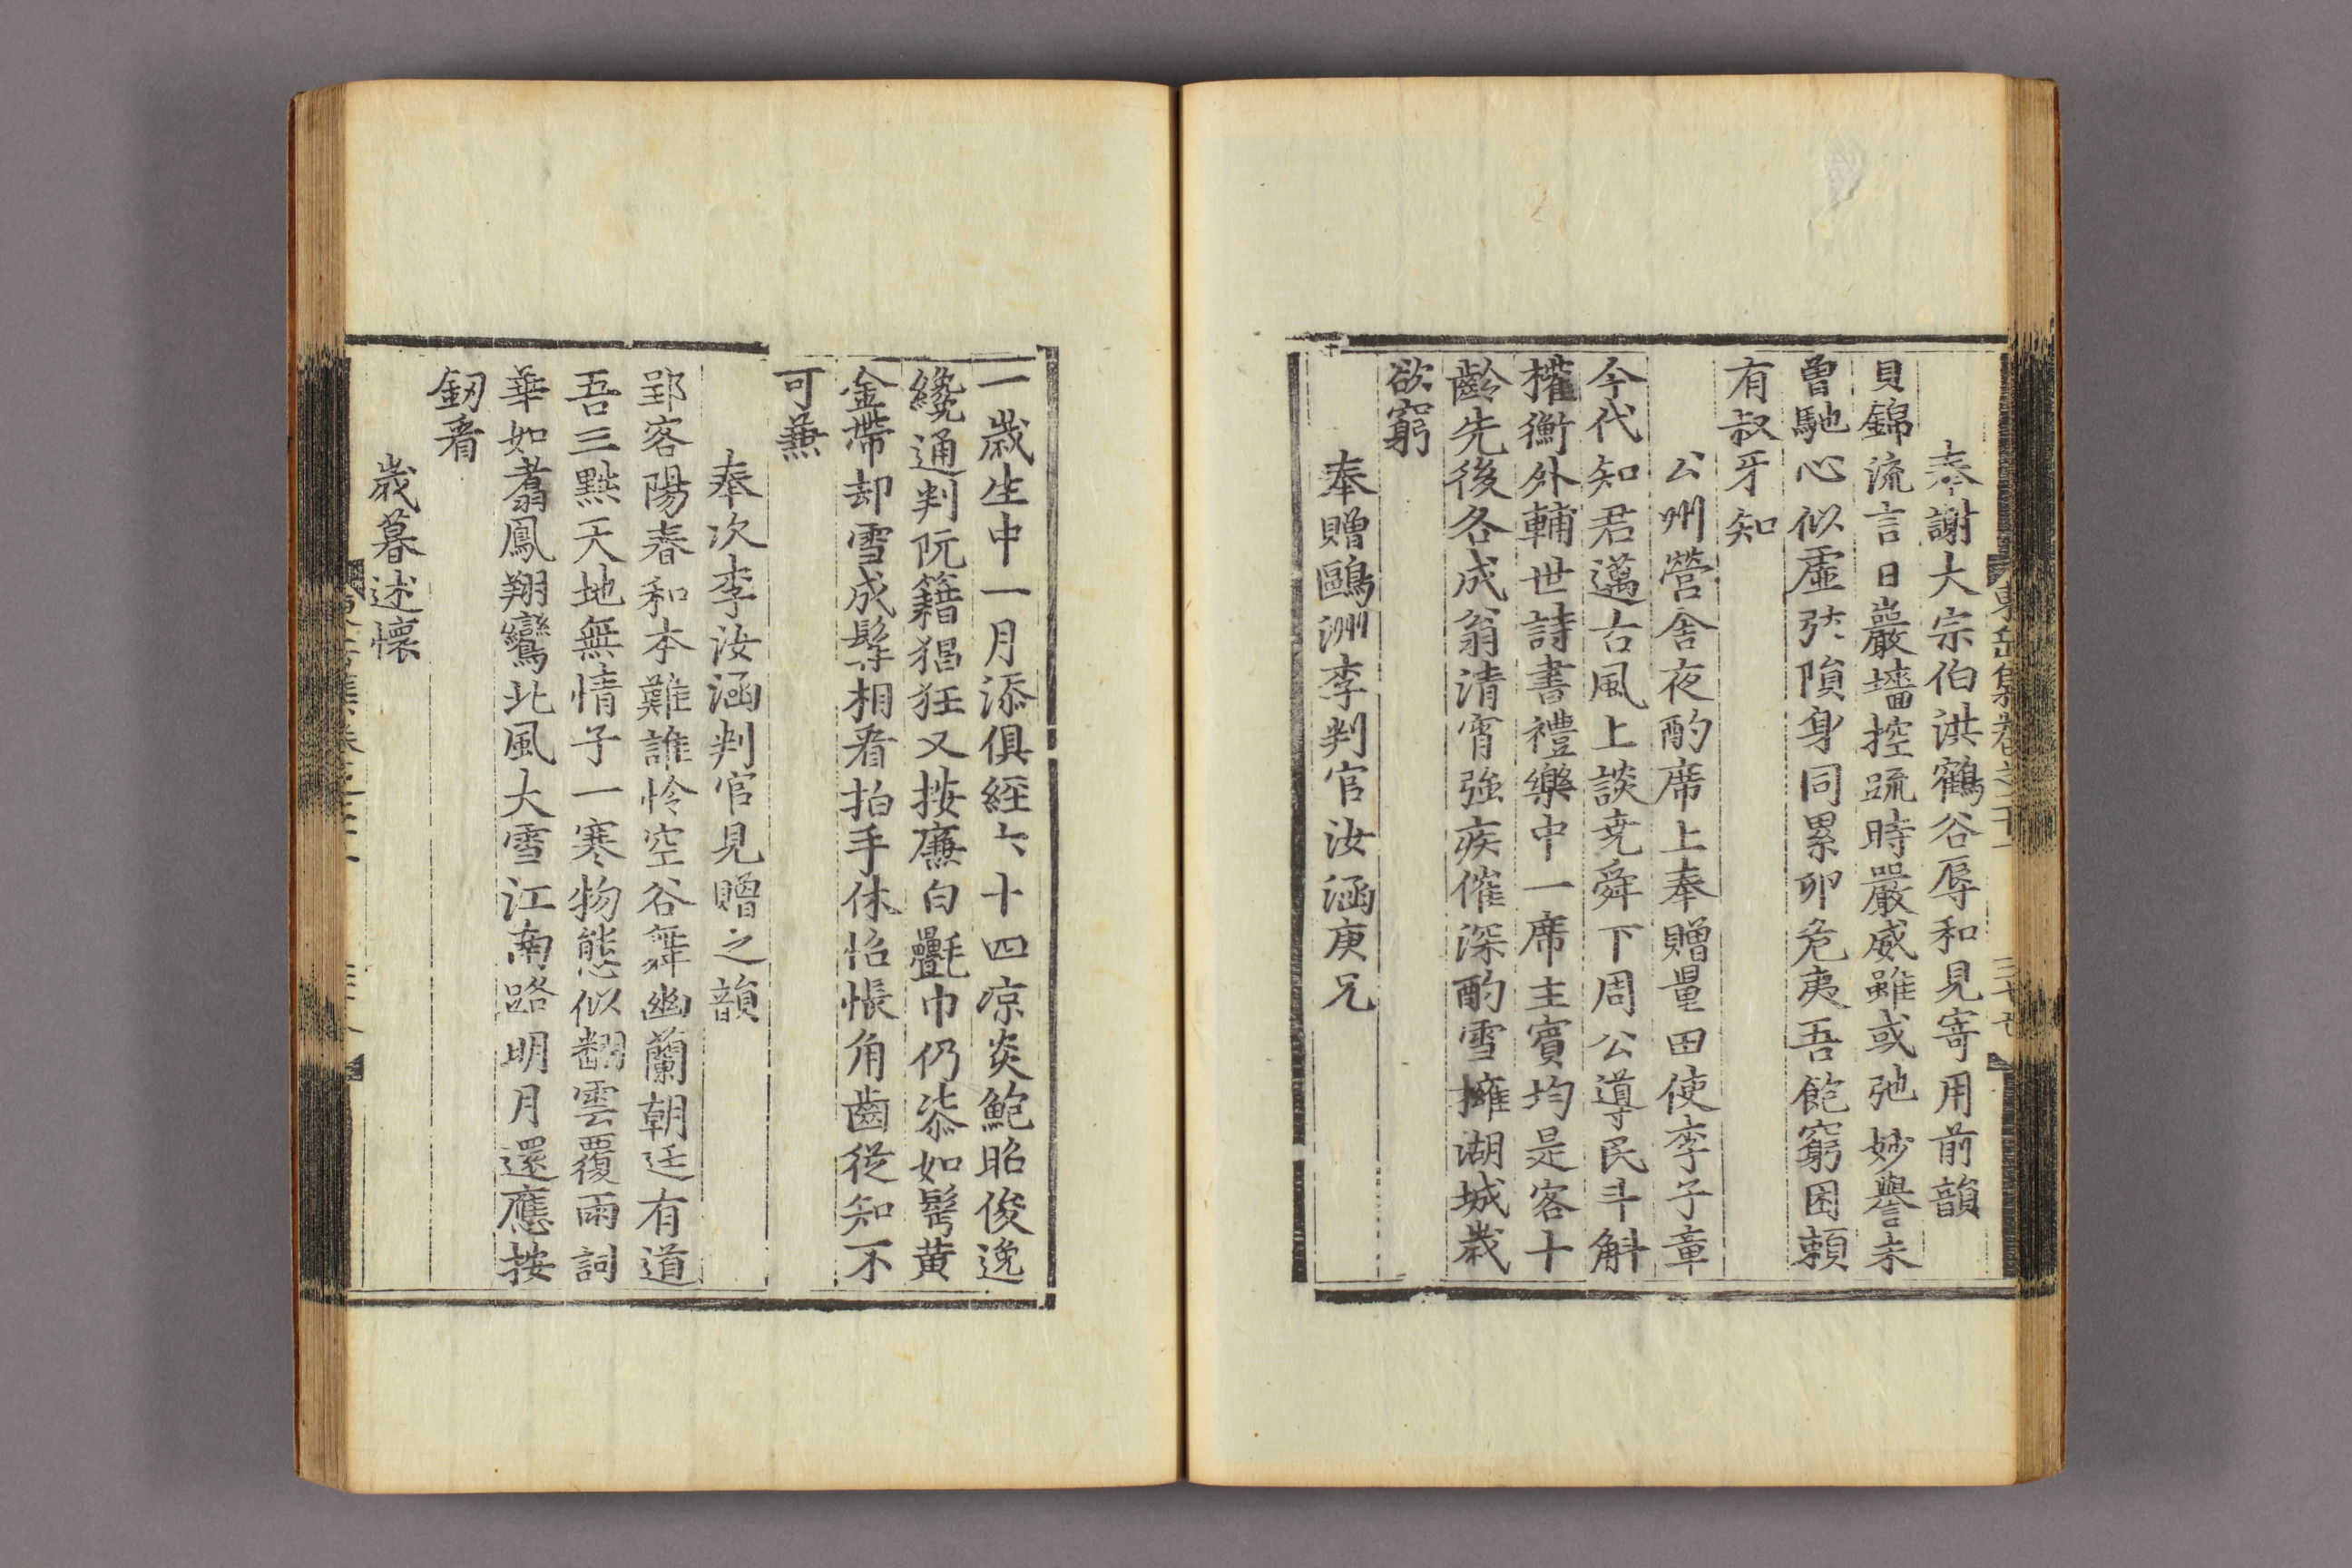 奉謝大宗伯洪鶴谷辱和見寄用前韻
貝錦流言日巖墻控䟽時嚴威雖或弛妙譽未
曾馳心似虛弦隕身同累卵危夷吾飽窮困頼
有叔牙知
公州營舍夜酌席上奉贈量田使李子章
今代知君邁古風上談堯舜下周公導民斗斛
權衡外輔世詩書禮樂中一席主賓均是客十
齡先後各成翁清宵強疾催深酌雪擁湖城歲
欲窮
奉贈鷗洲李判官汝涵庚兄
一歲生中一月添俱經六十四凉炎鮑昭俊逸
纔通判阮籍猖狂又按廉白㲲巾仍漆如髩黃
金帶却雪成髯相看拍手休怊悵角齒從知不
可兼
奉次李汝涵判官見贈之韻
郢客陽春和本難誰怜空谷舞幽蘭朝廷有道
吾三黜天地無情子一寒物態似翻雲覆雨詞
華如翥鳳翔鸞北風大雪江南路明月還應按
釼看
歲暮述懷